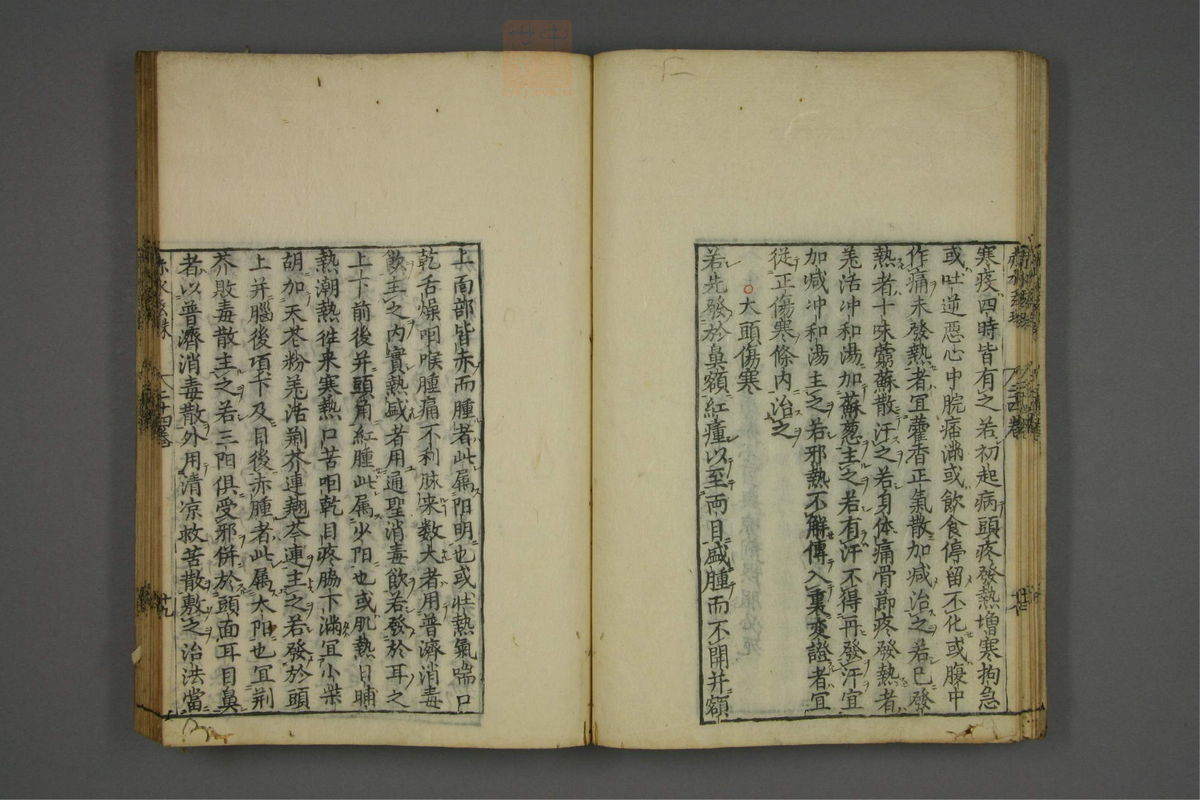 寒疫四時皆有之若初起病頭疼發熱增寒拘急
或吐逆惡心中脘痞滿或飲食停留不化或腹中
作痛未發熱者宜藿香正氣散加减治之若已發
熱者十味蘇散汗之若身体痛骨節疼發熱者
羗活冲和湯加蘇葱主之若有汗不得再發汗宜
加减冲和湯主之若邪熱不解傳入裏変證者宜
從正傷寒條内治之
大頭傷寒
若先發於鼻額紅腫以至両目盛腫而不開并額
上面部皆赤而腫者此属阳明也或壯熱氣喘口
乾舌燥咽喉腫痛不利脉来数大者用普濟消毒
飲主之内實熱盛者用通聖消毒飲若發於耳之
上下前後并頭角紅腫此属少阳也或肌熱日晡
熱潮熱徃来寒熱口苦咽乾目疼脇下滿宜小柴
胡加天花粉羗活荆芥連翹芩連主之若發於頭
上并腦後項下及目後赤腫者此属太阳也宜荆
芥敗毒散主之若三阳俱受邪併於頭面耳目鼻
者以普濟消毒散外用清凉救苦散敷之治法當